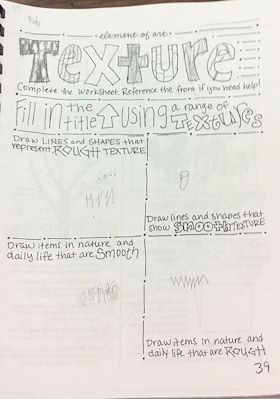 element of art
Texture
Complete the worksheet. Reference the front if you need help!
Fill in the title using a range of TEXTURES
Draw LINES and SHAPES that
represent ROUGH TEXTURE
Draw lines and shapes that
show Smooth TEXTURE
Draw items in nature and
daily life that are Smooth
Draw items in nature and
daily life that are ROUGH
39